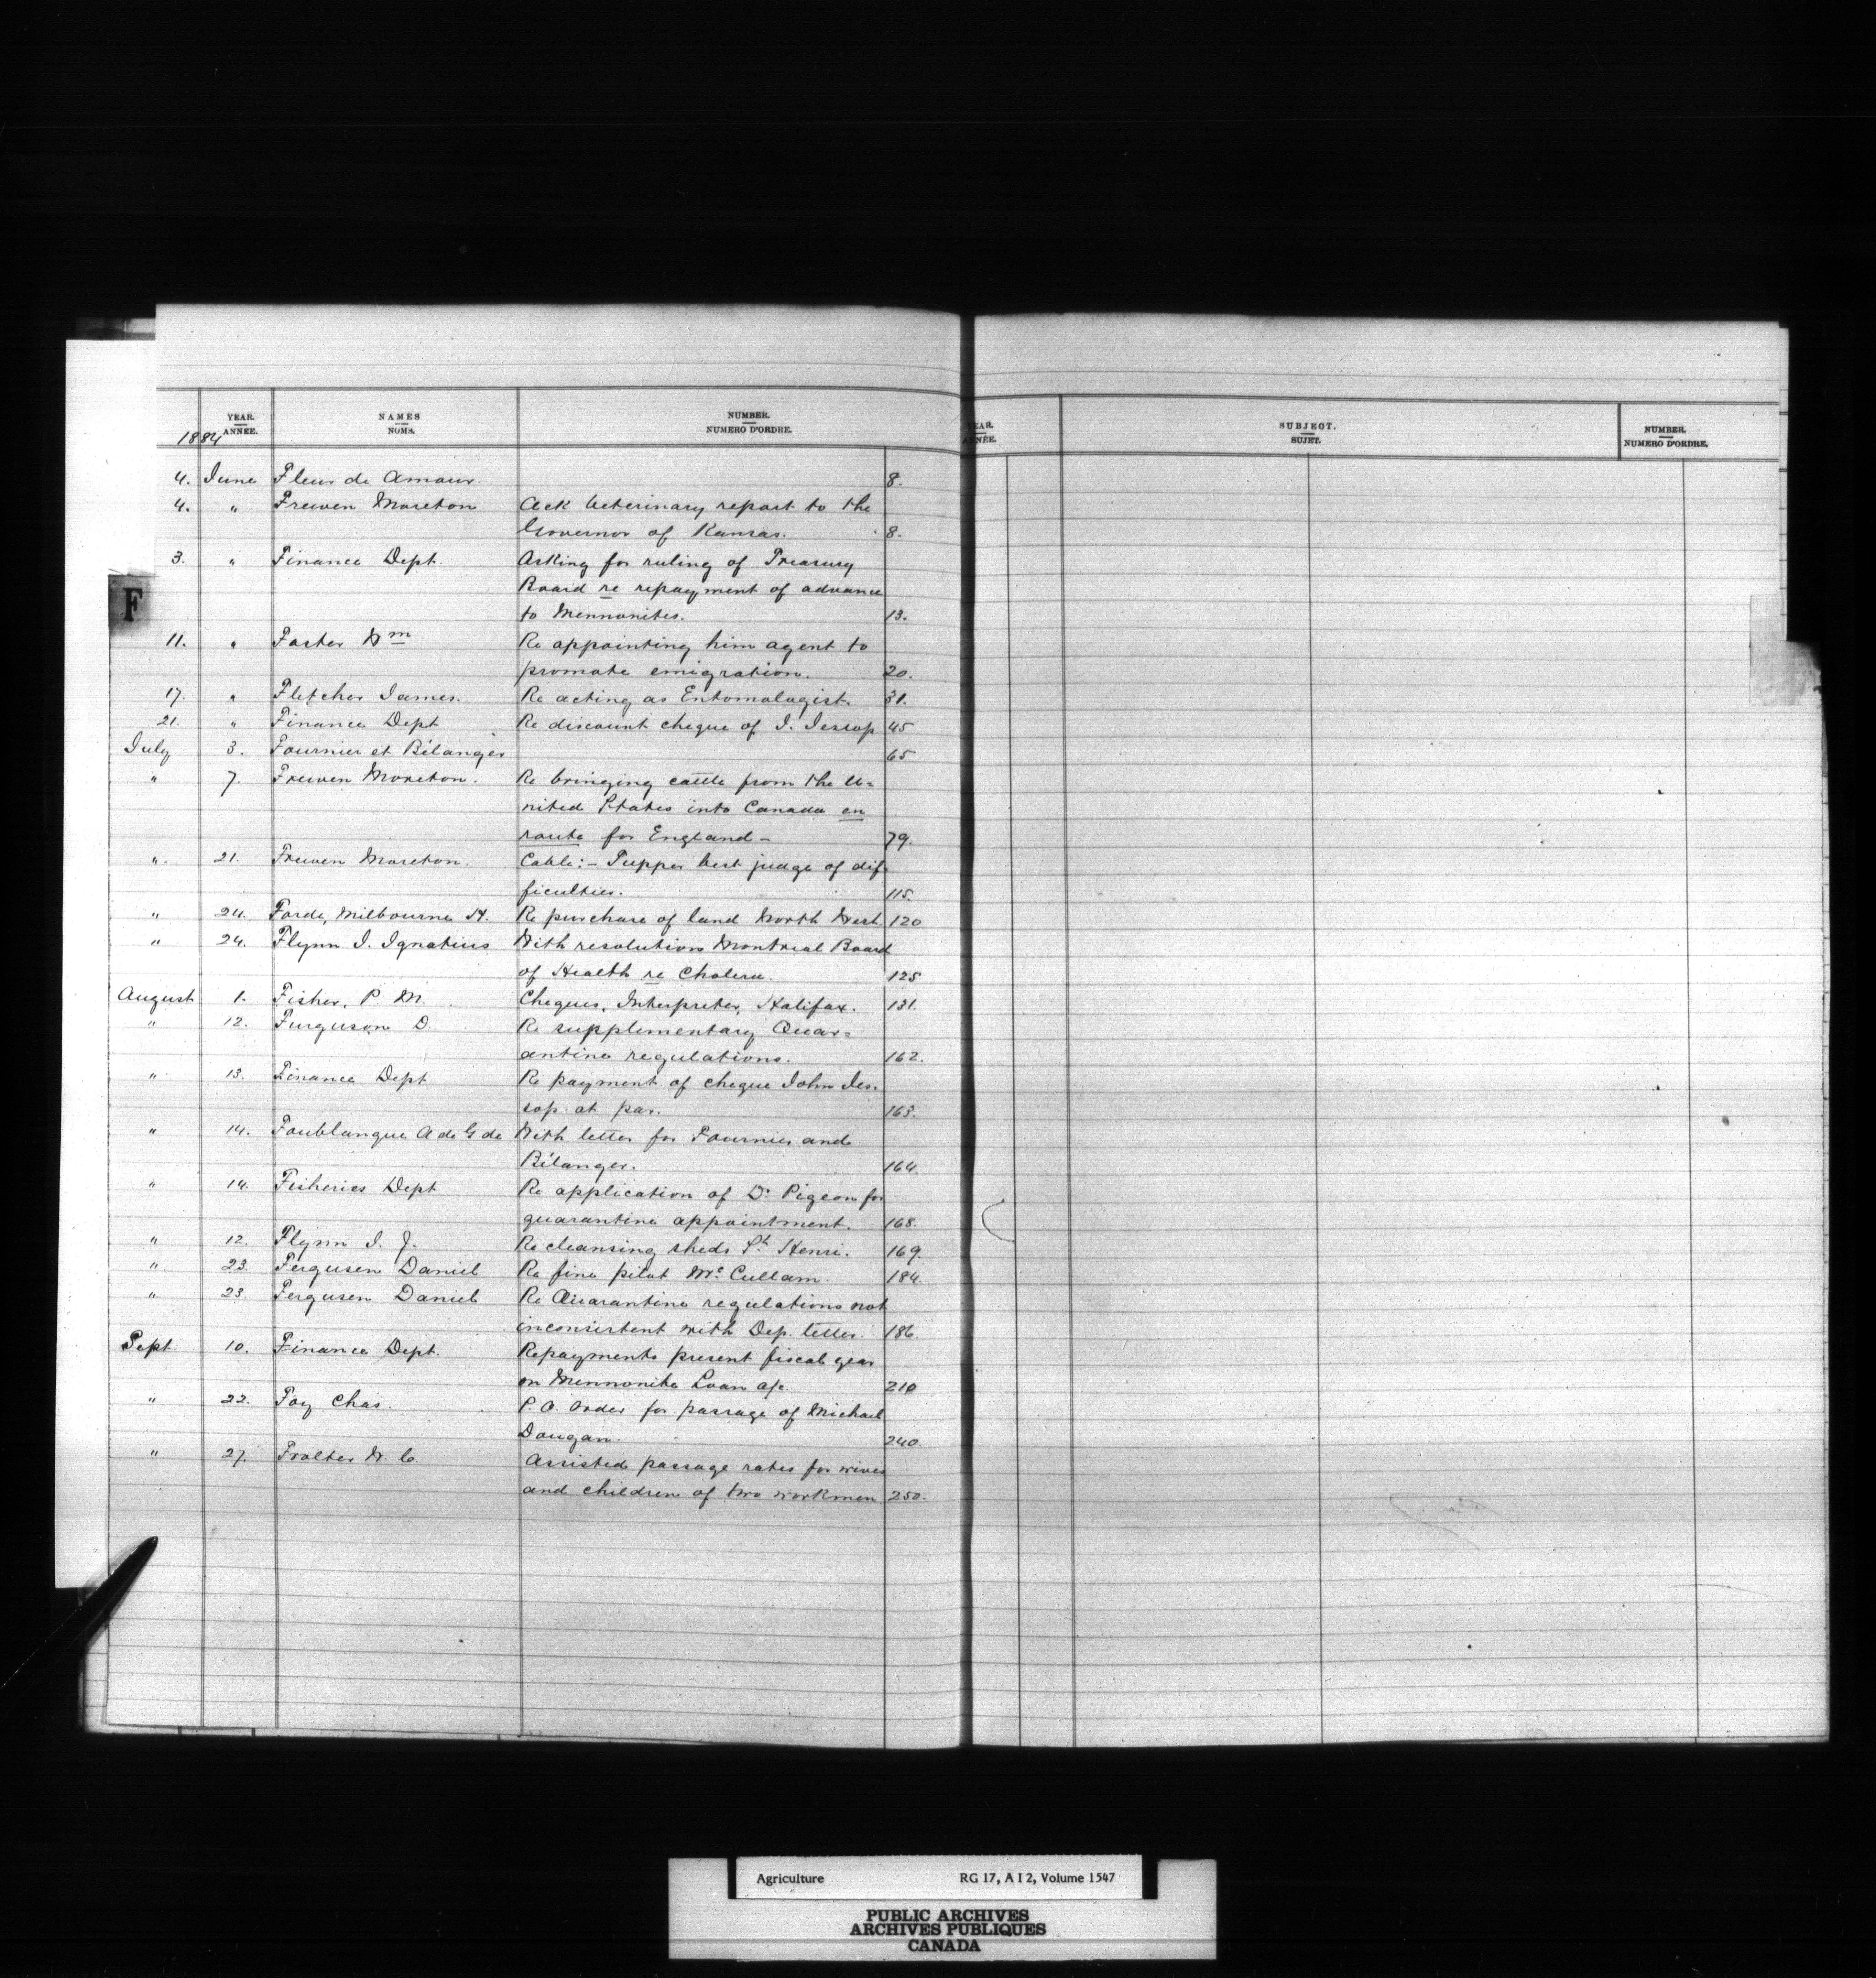 YEAR. NAMES NUMBER.
1884 ANNÉE. NOMS. NUMERO D'ORDRE.
YEAR. SUBJECT. NUMBER.
ANNÉE. SUJET. NUMERO D'ORDRE.
F
4. June Fleur de Amour. 8.
4. " Frewen Moreton Ack Veterinary report to the
Governor of Kansas. 8.
3. " Finance Dept. Asking for ruling of Treasury
Board re repayment of advance
to Mennonites. 13.
11. " Foster Wm Re appointing him agent to
promote emigration. 20.
17. " Fletcher James. Re acting as Entomologist. 31.
21. " Finance Dept Re discount cheque of J. Jessop 45
July 3. Fournier et Bélanger 65
" 7. Frewen Moreton. Re bringing cattle from the U=
nited States into Canada en
route for England – 79.
" 21. Frewen Moreton. Cable:– Tupper best judge of dif
ficulties. 115.
" 24. Forde, Milbourne H. Re purchase of land North West. 120
" 24. Flynn J. Ignatius With resolution Montreal Board
of Health re Cholera. 125
August 1. Fisher, P. M. Cheques, Interpreter, Halifax. 131.
" 12. Furguson D. Re supplementary Quar=
antine regulations. 162.
" 13. Finance Dept Re payment of cheque John Jes.
sop. at par. 163.
" 14. Fonblanque A de G de With letter for Fournier and
Bélanger. 164.
" 14. Fisheries Dept Re application of Dr Pigeon for
quarantine appointment. 168.
" 12. Flynn J. J. Re cleansing sheds St Henri. 169.
" 23. Fergusen Daniel Re fine pilot Mc Cullam. 184.
" 23. Fergusen Daniel Re Quarantine regulations not
inconsistent with Dep. letter. 186.
Sept 10. Finance Dept. Repayments present fiscal year
on Mennonite Loan a/c. 210
" 22. Foy Chas. P. O. Order for passage of Michael
Dougan. 240.
" 27. Frolter W. C. Assisted passage rates for wives
and children of two workmen 250.
Agriculture RG 17, A I 2, Volume 1547
PUBLIC ARCHIVES
ARCHIVES PUBLIQUES
CANADA